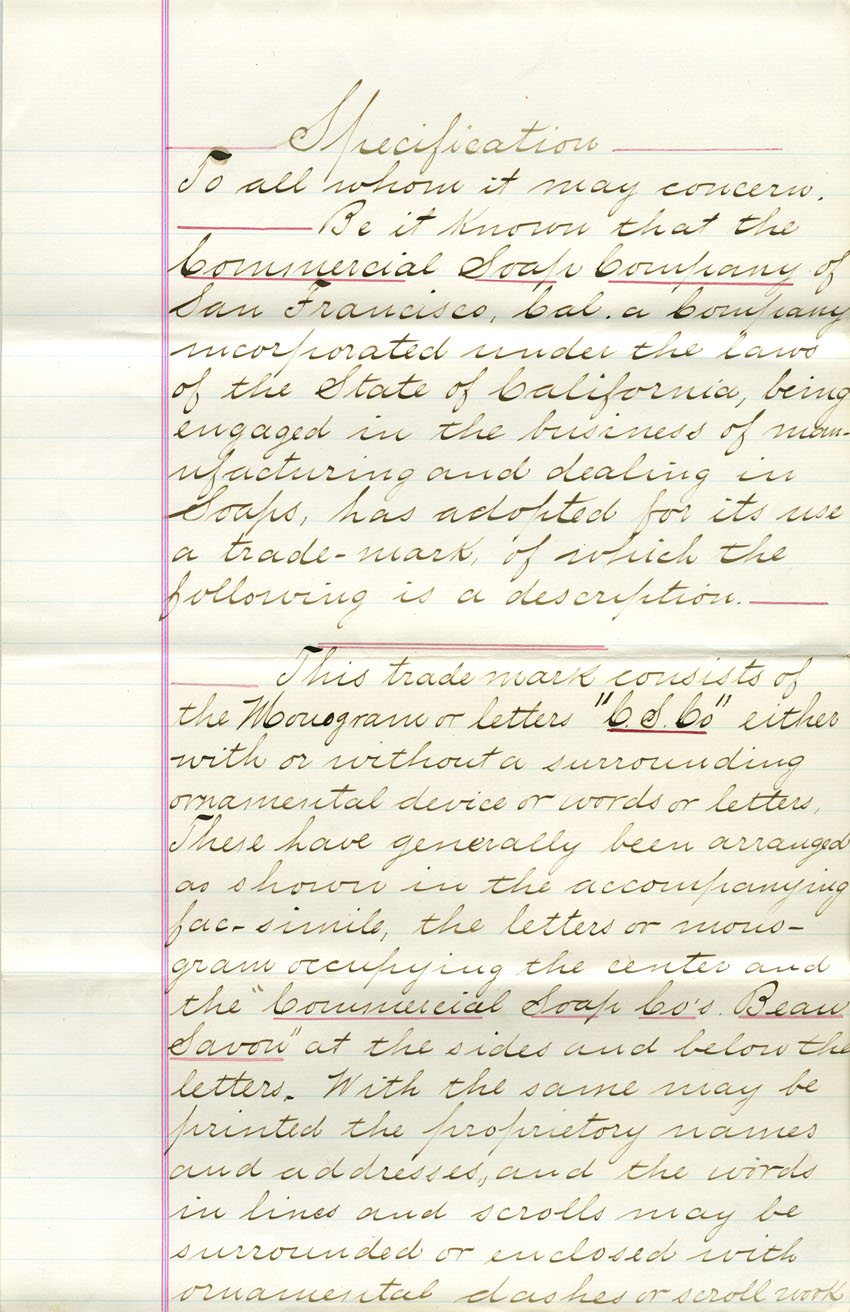 Specification
To all whom it may concern.
Be it Known that the
Commercial Soap Company of
San Francisco, Cal. a Company
incorporated under the laws
of the State of California, being
engaged in the business of man-
ufacturing and dealing in
Soaps, has adopted for its use
a trade-mark, of which the
following is a description.
This trade mark consists of
the Monogram or letters "C.S.Co" either
with or without a surrounding
ornamental device or words or letters,
These have generally been arranged
as shown in the accompanying
fac-simile, the letters or mono-
gram occupying the center and
the "Commercial Soap Co's. Beau
Savon" at the sides and below the
letters. With the same may be
printed the proprietory names
and addresses, and the words
in lines and scrolls may be
surrounded or enclosed with
ornamental dashes or scroll work